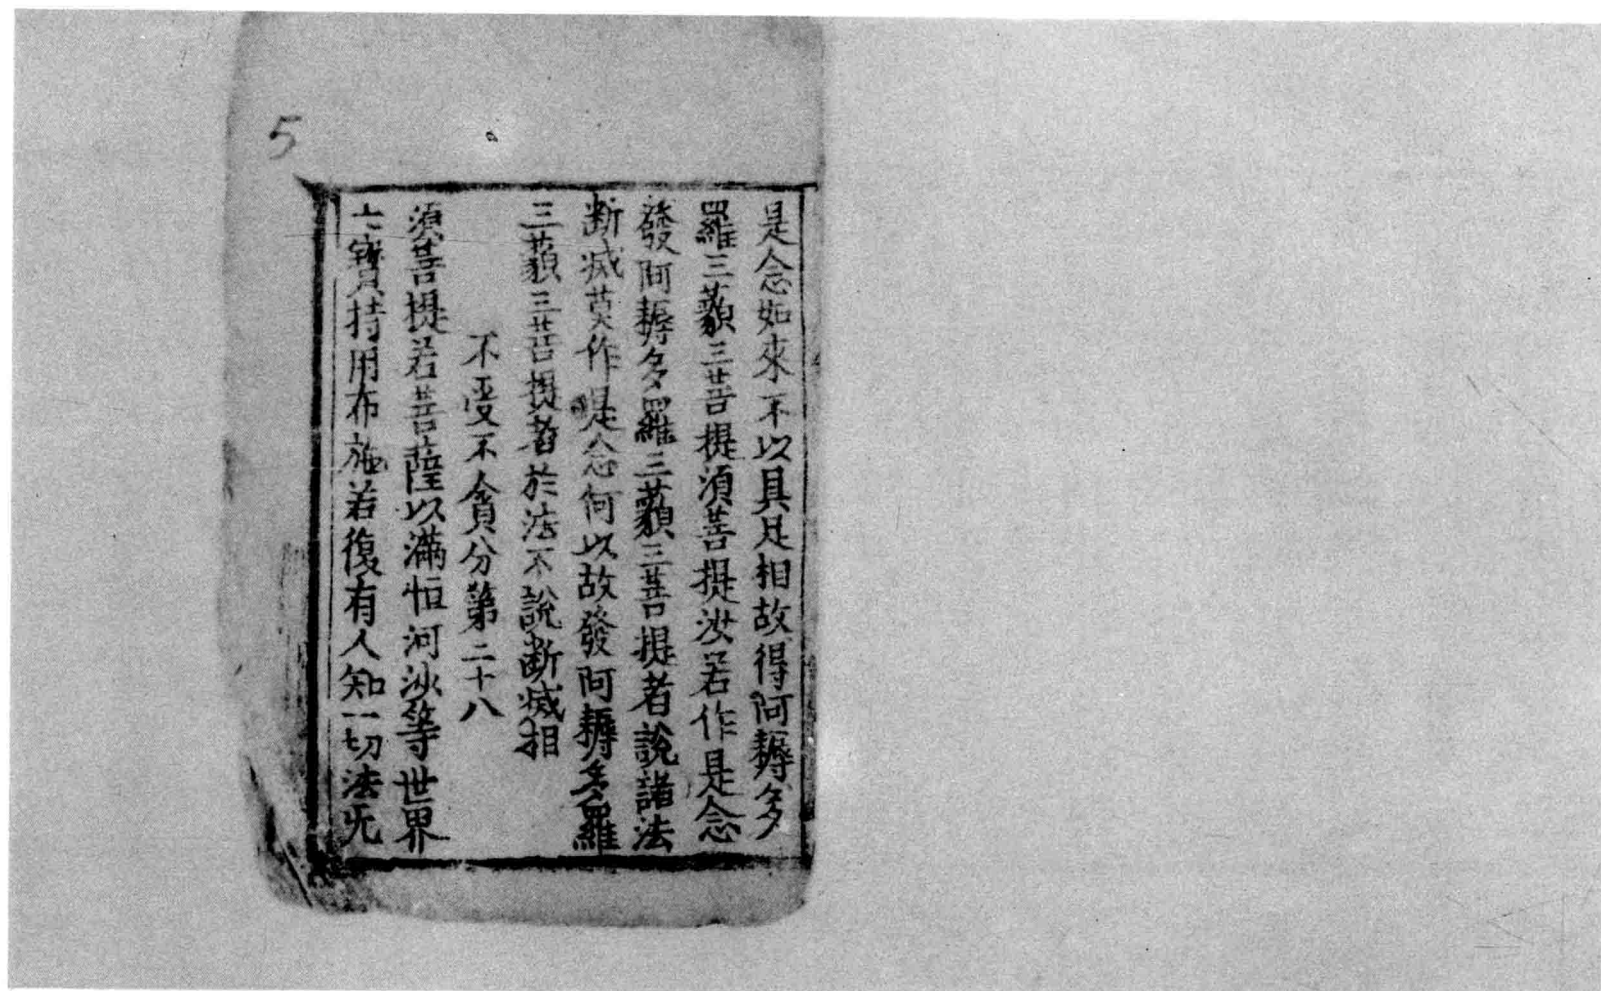 5
是念如來不以具足相故得阿耨多
羅三藐三菩提須菩提汝若作是念
發阿耨多羅三藐三菩提者說諸法
断滅莫作是念何以故發阿耨多羅
三藐三菩提者於法不說断滅相
不受不貪分第二十八
須菩提若菩薩以滿恒河沙等世界
七寶持用布施若復有人知一切法无